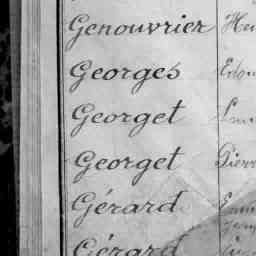 Genouvrier
Georges
Georget
Georget Pierr
Gérard
Gérard